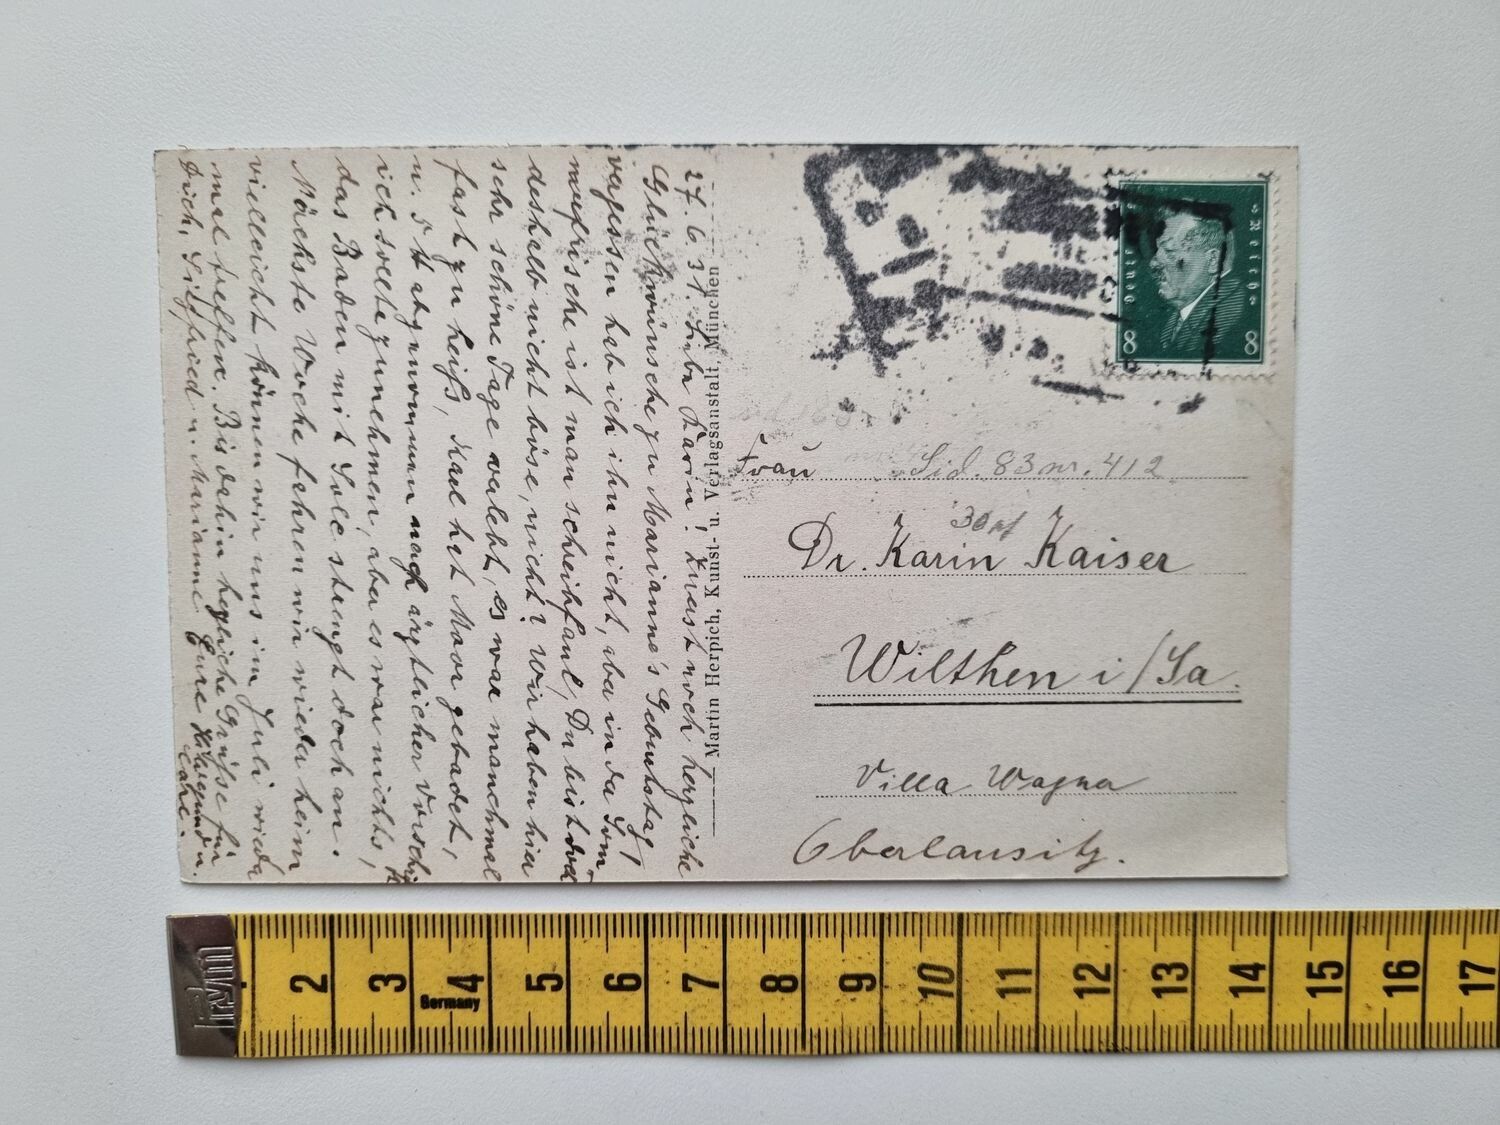 27. 6. 31. Liebe Karin! Zuerst noch herzliche
Glückwünsche zu Marianne's Geburtstag,
vergessen hab ich ihn nicht, aber in der Som
merfrische ist man schreibfaul, Du bist doch
deshalb nicht böse, nicht? Wir haben hier
sehr schöne Tage verlebt, es war manchmal
fast zu heiß, Karl hat Moor gebadet,
u. 5 ℔ abgenommen nach ärztlicher Vorschrift
ich sollte zunehmen, aber es war nichts,
das Baden mit Sole strengt doch an.
Nächste Woche fahren wir wieder heim
vielleicht können wir uns im Juli wieder
mal treffen. Bis dahin herzliche Grüße für
Dich, Siegfried u. Marianne Eure
Martin Herpich, Kunst- u. Verlagsanstalt, München
Reich
8 8
Frau Sid. 83 nr. 412
30 Pf
Dr. Karin Kaiser
Wilthen i/Sa.
Villa Wagner
Oberlausitz.
Prym
2 3 4 5 6 7 8 9 10 11 12 13 14 15 16 17
Germany